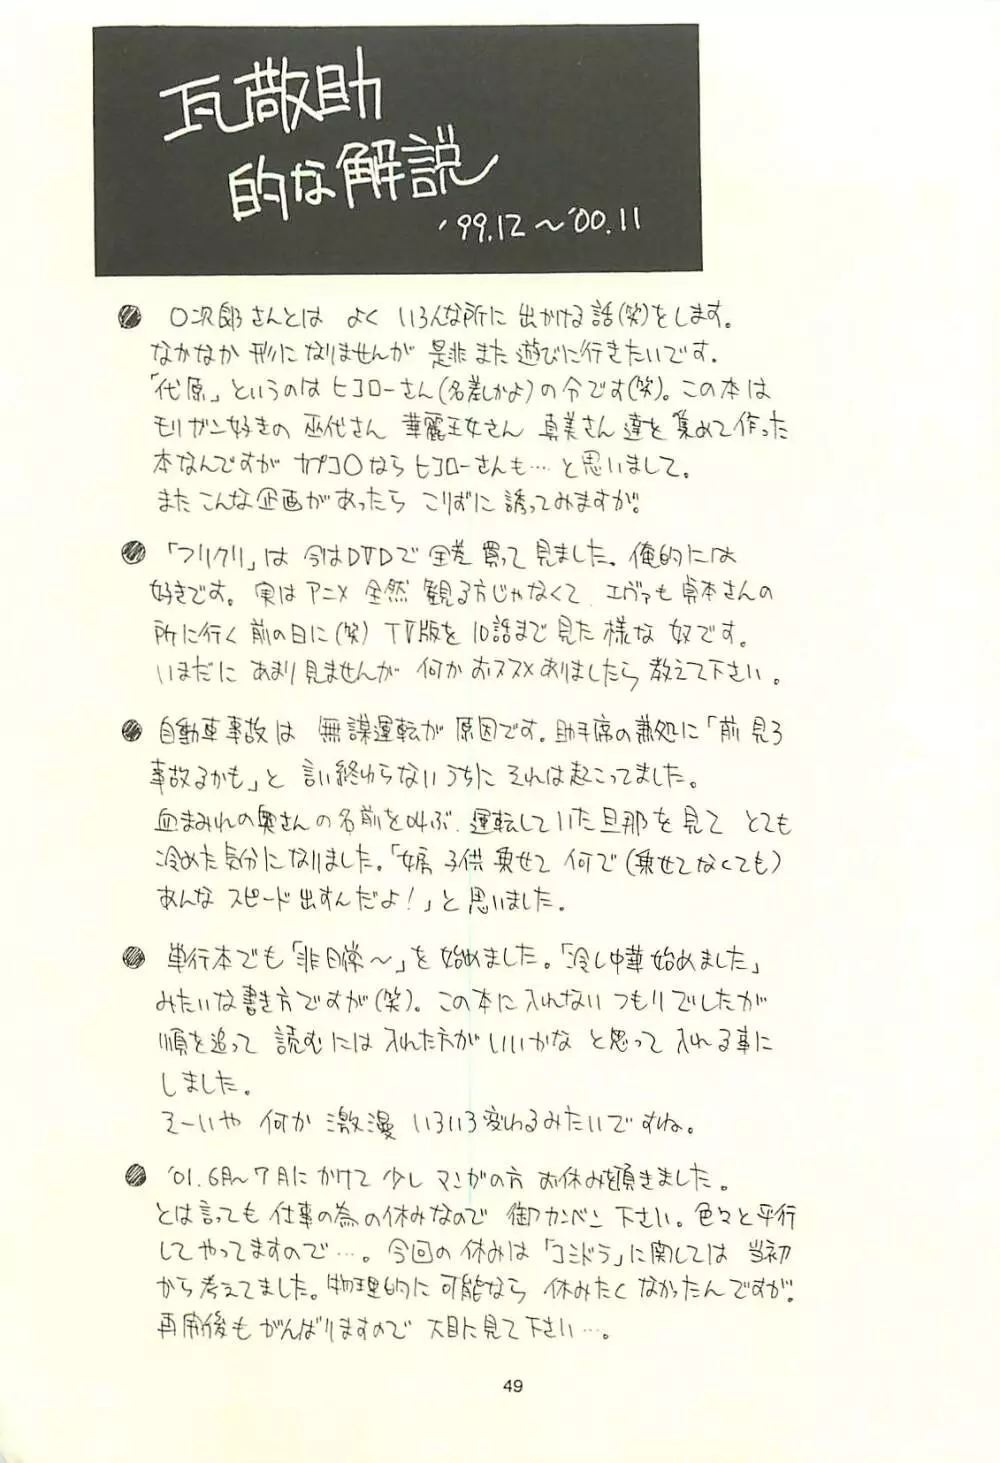 瓦敬助
的な解説
'99.12〜'00.11
● ○次郎さんとは よく いろんな所に 出かける話(笑)をします。
なかなか 形に なりませんが 是非 また 遊びに行きたいです.
「代原」というのは ヒヨコローさん(名差しかよ)の 令です(笑)。この本は
モリガン好きの 巫代さん 華麗王女さん 真美さん 達を 集めて作った
本なんですが カプコ○なら ヒヨコローさんも… と思いまして。
また こんな企画が あったら こりずに 誘ってみますが。
● 「フリクリ」は 今はDVDで 全巻 買って 見ました。俺的には
好きです。実は アニメ 全然 観る方じゃなくて エヴァも 貞本さんの
所に行く 前の日に(笑) TV版を 10話まで 見た 様な 奴です。
いまだに あまり見ませんが 何か おススメありましたら 教えて下さい。
● 自動車事故は 無謀運転が 原因です。助手席の 兼処に「前 見ろ
事故るかも」と 言い終わらない うちに それは起こってました。
血まみれの奥さんの 名前を叫ぶ. 運転していた旦那を 見て とても
冷めた気分になりました。「女房 子供 乗せて 何で(乗せてなくても)
あんな スピード 出すんだよ!」と 思いました。
● 単行本でも「非日常〜」を 始めました。「冷し中華 始めました」
みたいな書き方ですが(笑)。この本に入れない つもりでしたが
順を追って 読むには 入れた方が いいかな と思って 入れる事に
しました。
そーいや 何か 激漫 いろいろ変わるみたいですね。
● '01.6月〜7月に かけて 少し マンガの方 お休みを頂きました。
とは言っても 仕事の為の休みなので 御カンベン 下さい。色々と平行
してやってますので…。今回の休みは「コミドラ」に関しては 当初
から考えてました。物理的に 可能なら 休みたく なかったんですが.
再開後も がんばりますので 大目に見て下さい…。
49